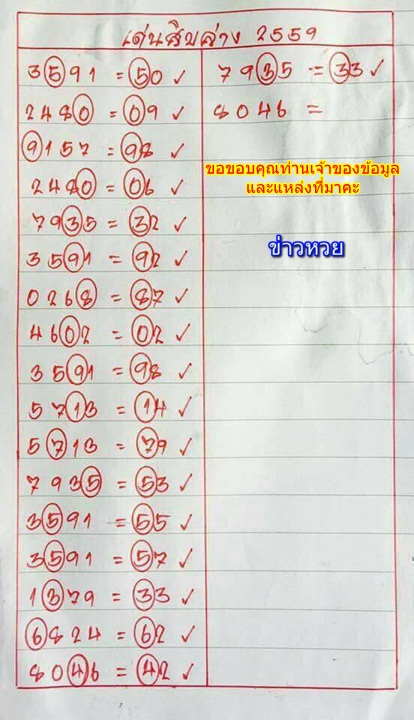 เด่นสิบล่าง 2559
3591 = 50 ✓
2480 = 09 ✓
9157 = 98 ✓
2480 = 06 ✓
7935 = 32 ✓
3591 = 92 ✓
0268 = 87 ✓
4602 = 02 ✓
3591 = 98 ✓
5713 = 14 ✓
5713 = 79 ✓
7935 = 53 ✓
3591 = 55 ✓
3591 = 57 ✓
1379 = 33 ✓
6824 = 62 ✓
8046 = 42 ✓
7935 = 33 ✓
8046 =
ขอขอบคุณท่านเจ้าของข้อมูล
และแหล่งที่มาคะ
ข่าวหวย